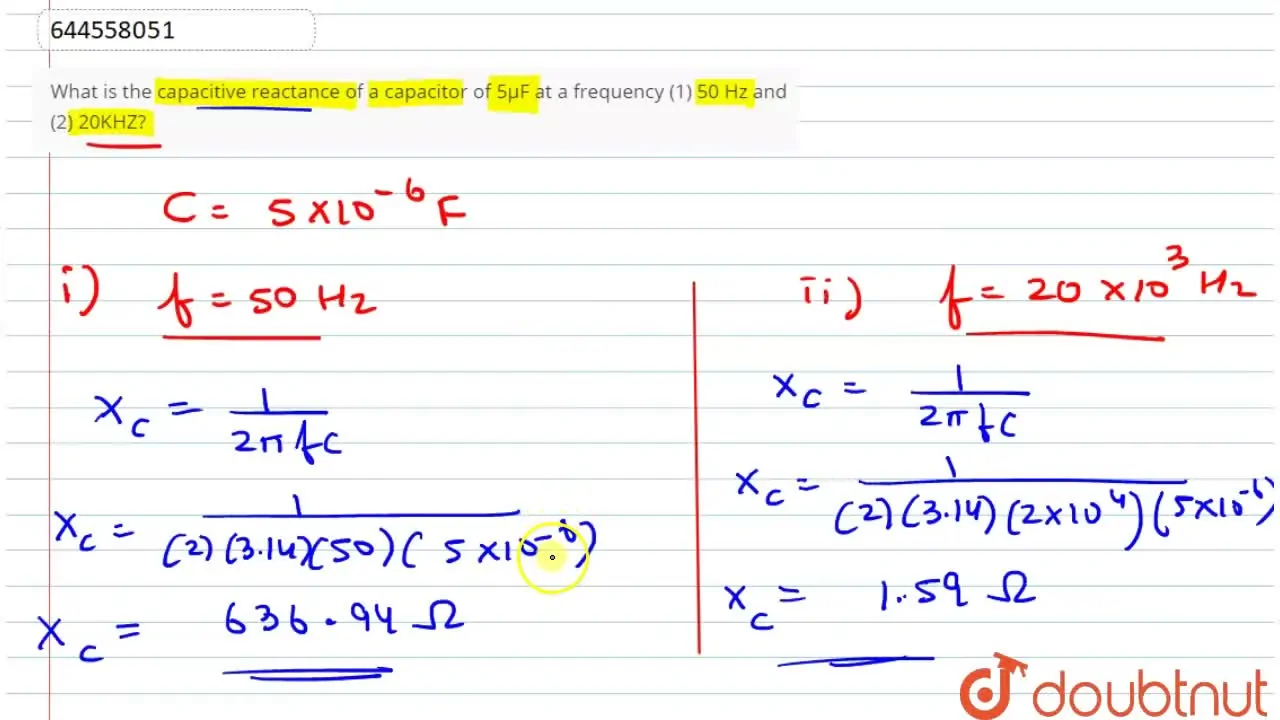 644558051
What is the capacitive reactance of a capacitor of 5μF at a frequency (1) 50 Hz and
(2) 20KHZ?
C = 5 × 10⁻⁶ F
i) f = 50 Hz
X_C = 1 / 2π f C
X_C = 1 / (2) (3.14)(50) ( 5 × 10⁻⁶)
X_C = 636.94 Ω
ii) f = 20 × 10³ Hz
X_C = 1 / 2π f C
X_C = 1 / (2) (3.14) (2 × 10⁴) (5 × 10⁻⁶)
X_C = 1.59 Ω
doubtnut